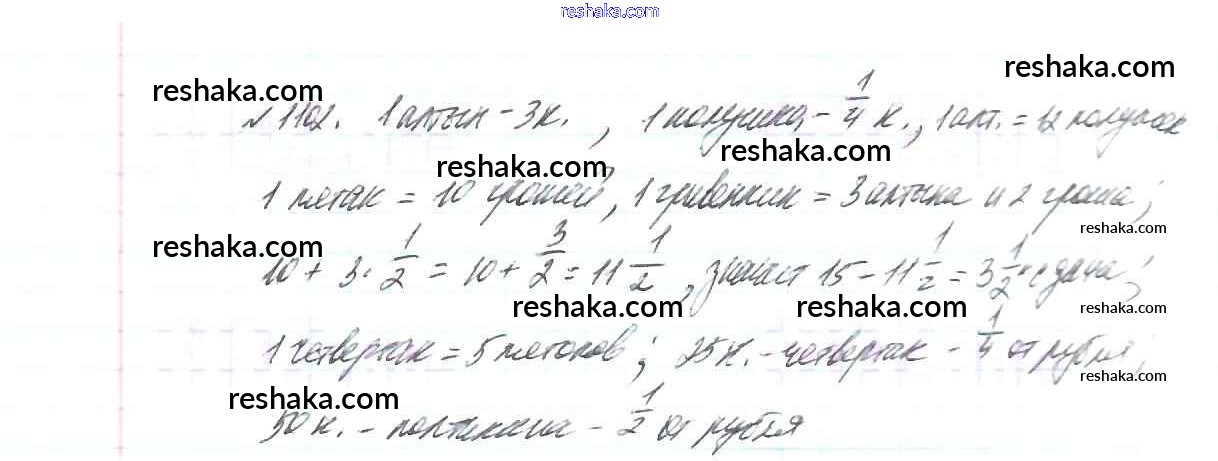 reshaka.com
reshaka.com
reshaka.com
№ 1102. 1 алтын - 3 к. , 1 полушка - 1/4 к. , 1 алт. = 12 полушек
reshaka.com
reshaka.com
1 пятак = 10 грошей, 1 гривенник = 3 алтына и 2 гроша;
reshaka.com
reshaka.com
10 + 3 · 1/2 = 10 + 3/2 = 11 1/2 , значит 15 - 11 1/2 = 3 1/2 к сдача;
reshaka.com
reshaka.com
reshaka.com
1 четвертак = 5 пятаков ; 25 к. - четвертак - 1/4 от рубля;
reshaka.com
reshaka.com
50 к. - полтинник - 1/2 от рубля